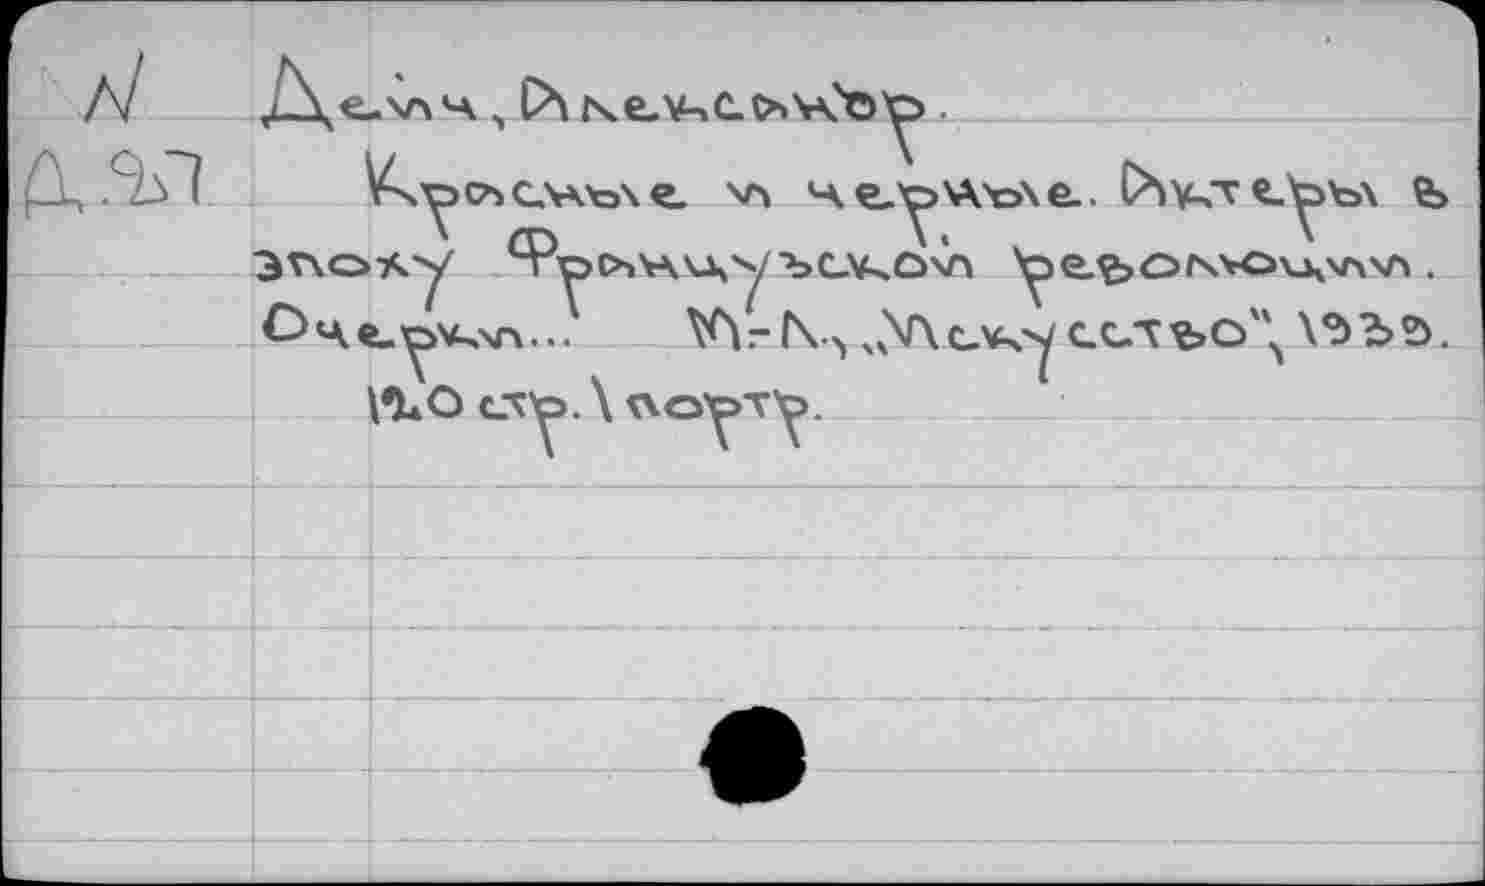 N
Д.27
Дейч, Александр.
Красные и черные. Актеры в
эпоху Французской революции.
Очерки... М.-Л., „Искусство", 1939.
120 стр. 1 портр.